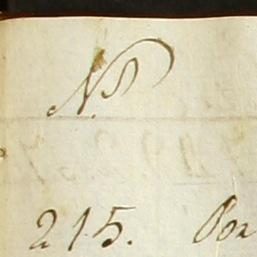 N.
215. Por